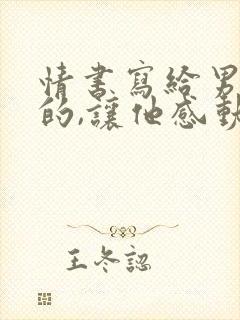 情書寫給男
的,讓他感動
王冬認